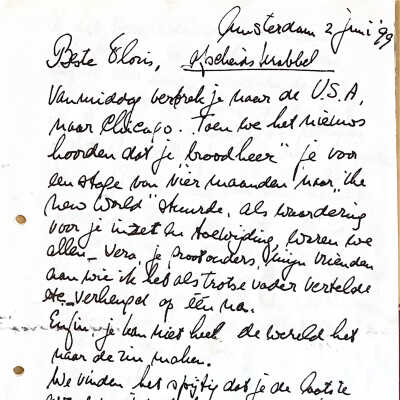 Amsterdam 2 juni '99
Beste Floris, Afscheids krabbel
Vanmiddag vertrek je naar de U.S.A,
naar Chicago. Toen we het nieuws
hoorden dat je "broodheer" je voor
een stage van vier maanden naar "the
new World" stuurde, als waardering
voor je inzet en toewijding, waren we
allen - Vera, je grootouders, mijn vrienden
aan wie ik het als trotse vader vertelde
etc - verheugd op één na.
Enfin, je kan niet heel de wereld het
naar de zin maken.
We vinden het spijtig dat je de laatste